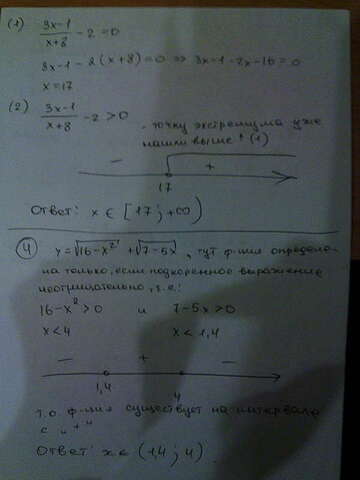 (1) 3x-1/x+8 - 2 = 0
3x-1-2(x+8)=0 => 3x-1-2x-16=0
x=17
(2) 3x-1/x+8 - 2 > 0
, точку экстремума уже
нашли выше ↑ (1)
- +
17
Ответ: x ∈ [17; +∞)
4 y=√16-x² + √7-5x, тут ф-ция определе-
на только, если подкоренное выражение
неотрицательно, т.е.:
16-x²>0 и 7-5x>0
x<4 x<1,4
- + -
1,4 4
т.о. ф-ция существует на интервале
с "+"
Ответ: x ∈ (1,4; 4)